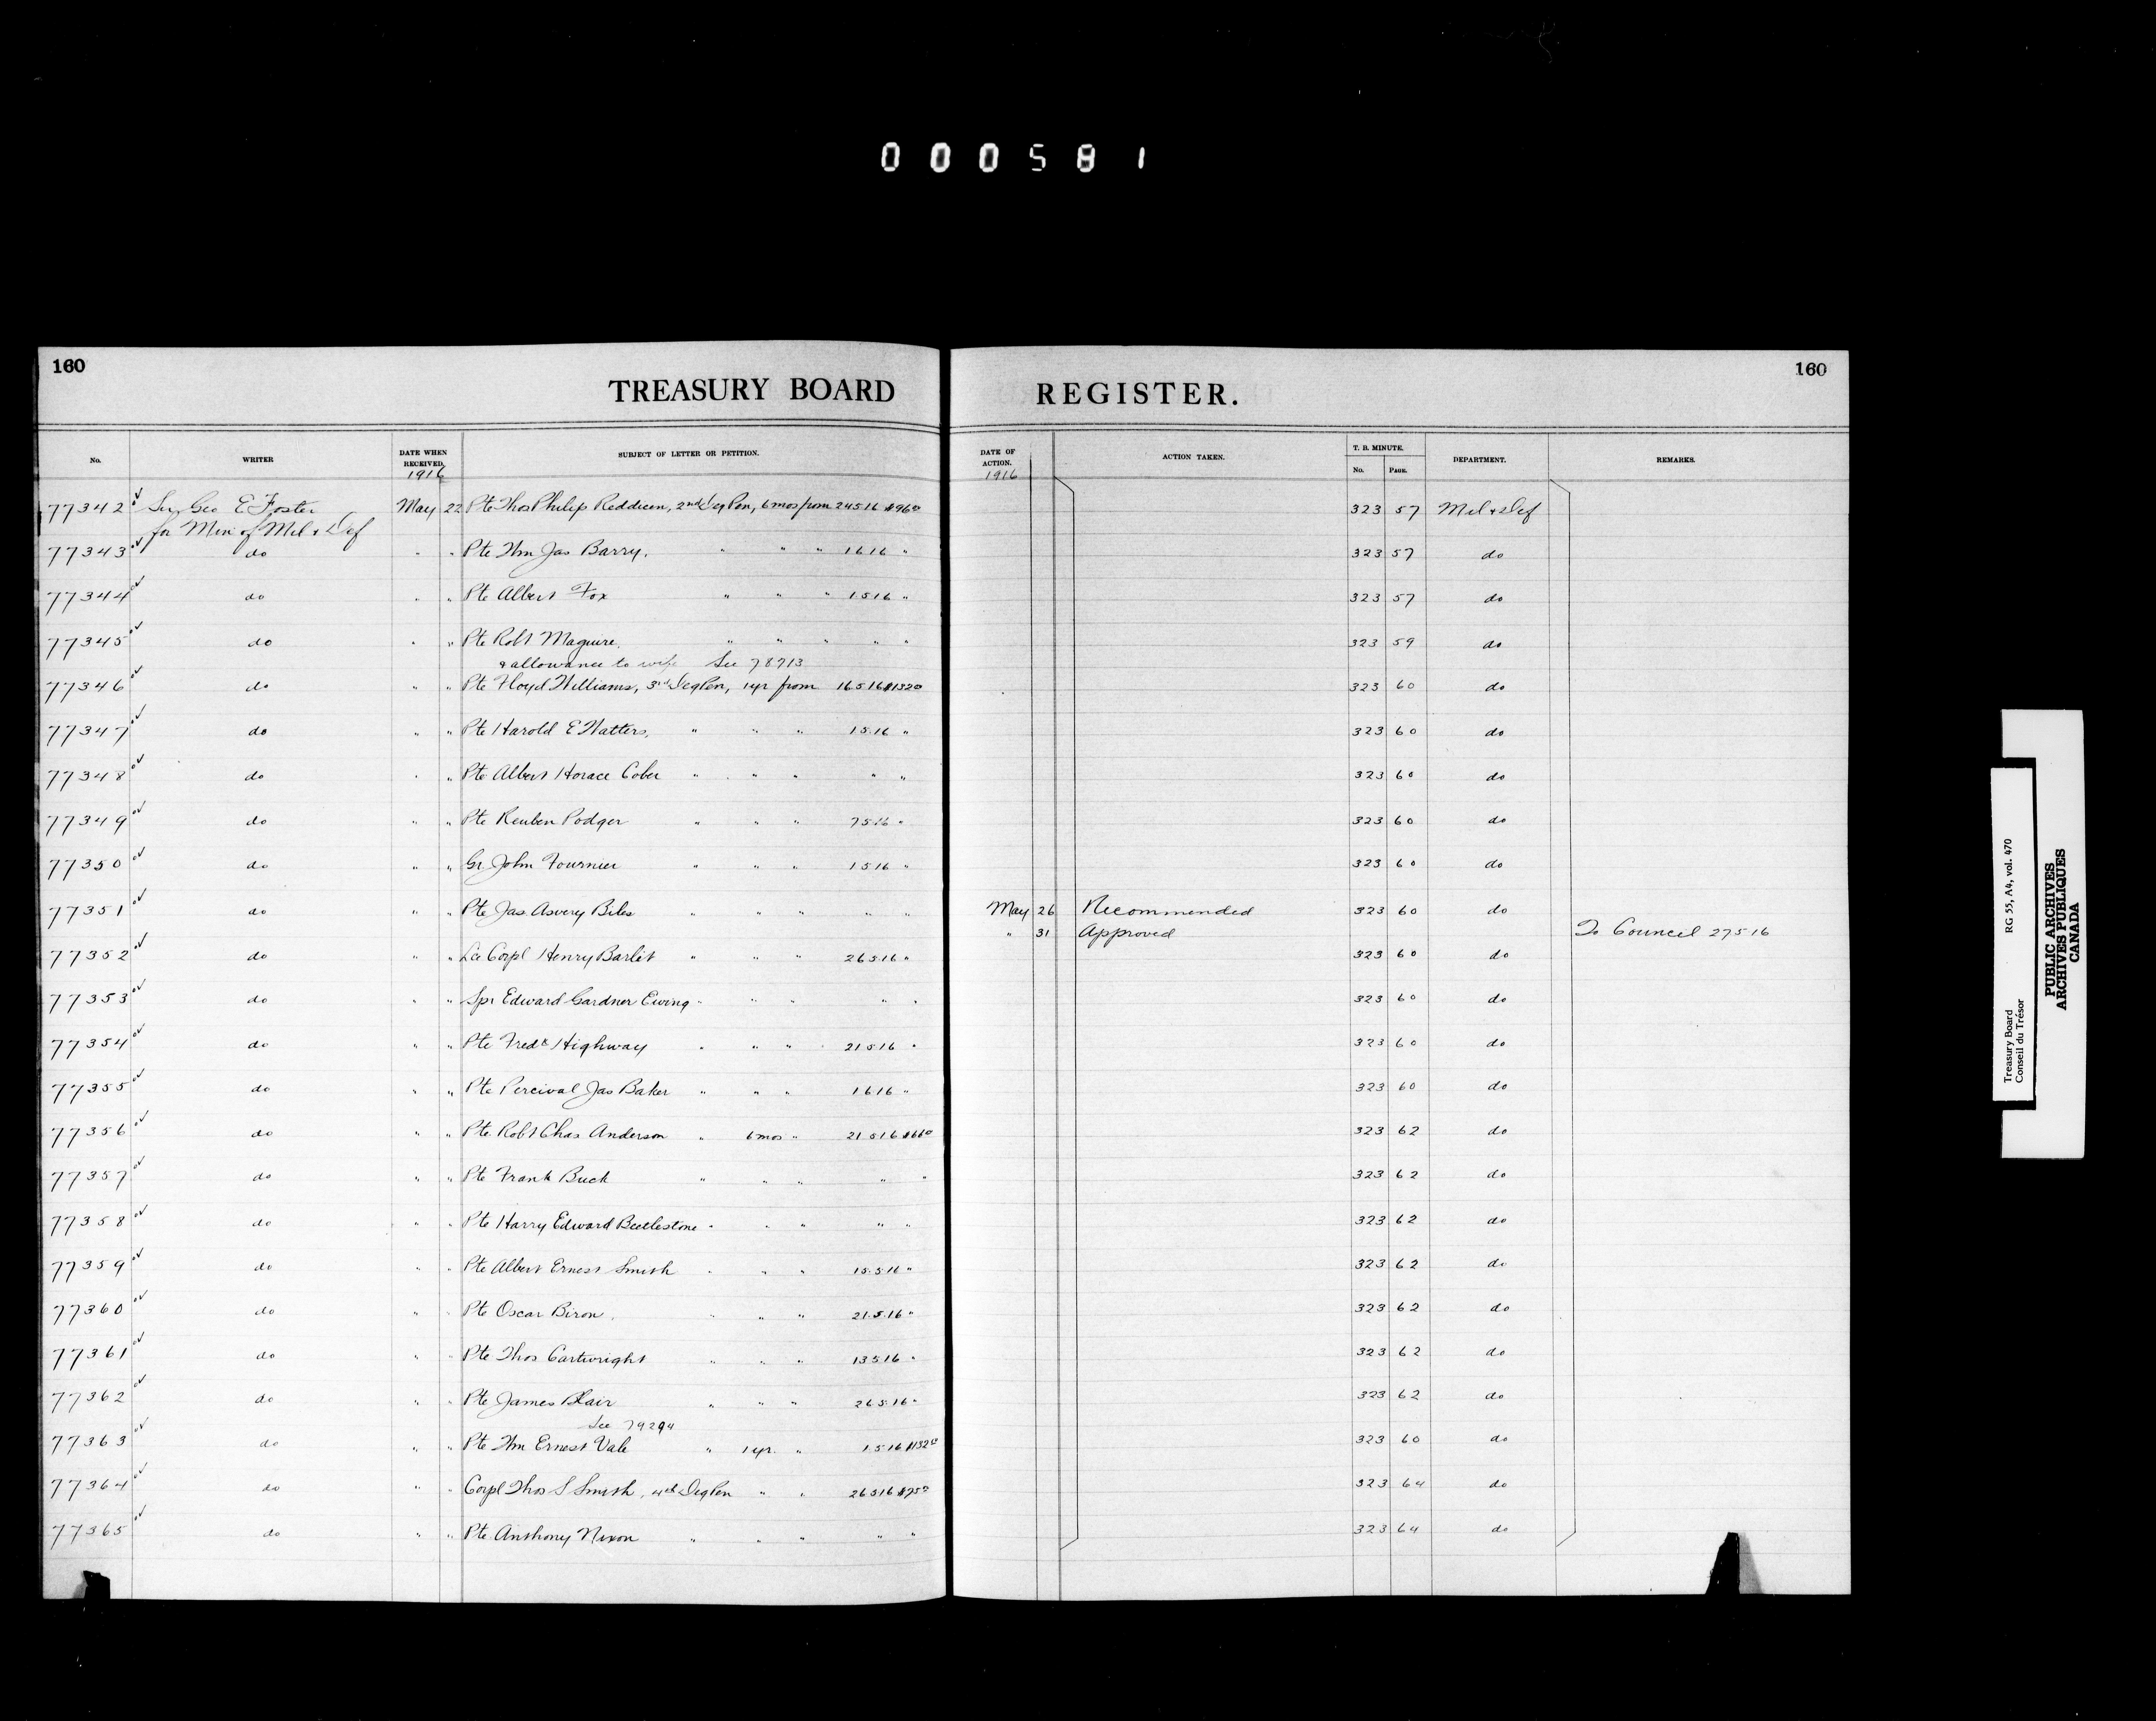 000581
160
TREASURY BOARD
REGISTER.
160
No. WRITER DATE WHEN RECEIVED. SUBJECT OF LETTER OR PETITION. DATE OF ACTION. ACTION TAKEN. T. B. MINUTE. No. PAGE. DEPARTMENT. REMARKS.
1916 1916
77342 Sir Geo E Foster May 22 Pte Thos Philip Reddicen, 2nd Deg Pen, 6 mos from 24516 $96⁰ 323 57 Mil & Def
for Min of Mil & Def
77343 do " " Pte Wm Jas Barry, " " " 1616 " 323 57 do
77344 do " " Pte Albert Fox " " " 1516 " 323 57 do
77345 do " " Pte Robt Maguire, " " " " " 323 59 do
& allowance to wife See 78713
77346 do " " Pte Floyd Williams, 3rd Deg Pen, 1 yr from 16516 $132⁰ 323 60 do
77347 do " " Pte Harold E Watters, " " " 1516 " 323 60 do
77348 do " " Pte Albert Horace Cober " " " " " 323 60 do
77349 do " " Pte Reuben Podger " " " 7516 " 323 60 do
77350 do " " Gr John Fournier " " " 1516 " 323 60 do
77351 do " " Pte Jas Asvery Biles " " " " " May 26 Recommended 323 60 do
" 31 Approved To Council 27516
77352 do " " Lce Corpl Henry Barlet " " " 26516 " 323 60 do
77353 do " " Spr Edward Gardner Ewing " " " " " 323 60 do
77354 do " " Pte Fredk Highway " " " 21516 " 323 60 do
77355 do " " Pte Percival Jas Baker " " " 1616 " 323 60 do
77356 do " " Pte Robt Chas Anderson " 6 mos " 21516 $66⁰ 323 62 do
77357 do " " Pte Frank Buck " " " " " 323 62 do
77358 do " " Pte Harry Edward Beetlestone " " " " " 323 62 do
77359 do " " Pte Albert Ernest Smith " " " 15.5.16 " 323 62 do
77360 do " " Pte Oscar Biron, " " " 21.5.16 " 323 62 do
77361 do " " Pte Thos Cartwright " " " 13516 " 323 62 do
77362 do " " Pte James Blair " " " 26516 " 323 62 do
See 79294
77363 do " " Pte Wm Ernest Vale " 1 yr. " 1516 $132⁰ 323 60 do
77364 do " " Corpl Thos S Smith, 4th Deg Pen " " 26516 $75⁰ 323 64 do
77365 do " " Pte Anthony Nixon " " " " " 323 64 do
Treasury Board RG 55, A4, vol. 470
Conseil du Trésor
PUBLIC ARCHIVES
ARCHIVES PUBLIQUES
CANADA